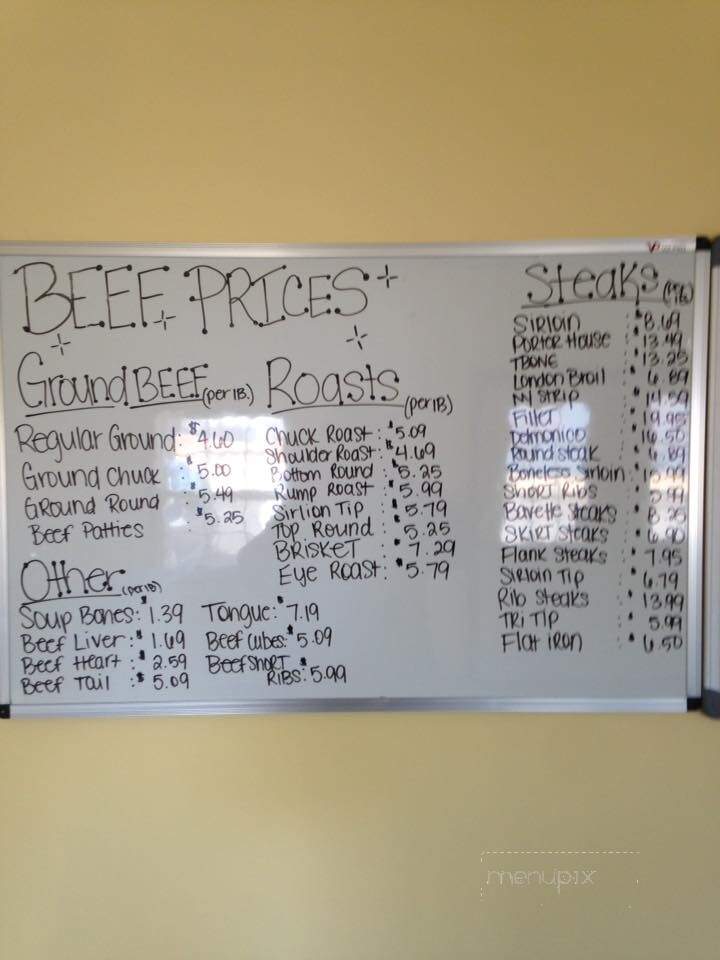 BEEF PRICES
Ground BEEF (per lB.)
Regular Ground: $4.60
Ground Chuck : $5.00
GRound Round : $5.49
Beef Patties : $5.25
Roasts (per lB)
Chuck Roast: $5.09
Shoulder Roast: $4.69
Bottom Round : $5.25
Rump Roast : $5.99
Sirlion Tip : $5.79
Top Round : $5.25
BRISKET : $7.29
Eye Roast: $5.79
Other (per lB)
Soup Bones: $1.39
Beef Liver: $1.69
Beef Heart: $2.59
Beef Tail : $5.09
Tongue: $7.19
Beef Cubes: $5.09
Beef Short
RIBS: $5.99
Steaks
Sirloin : $8.69
Porter House : $13.49
TBONE : $13.25
London Broil : $6.89
NY STRIP : $14.59
Fillet : $19.95
Delmonico : $16.50
Round Steak : $6.89
Boneless Sirloin:
Short Ribs : $5.99
Bavette Steaks : $8.25
SKIRT STEAKS : $6.90
Flank Steaks : $7.95
Sirloin Tip : $6.79
Rib Steaks : $13.99
TRI TIP : $5.99
Flat iron : $6.50
menupix